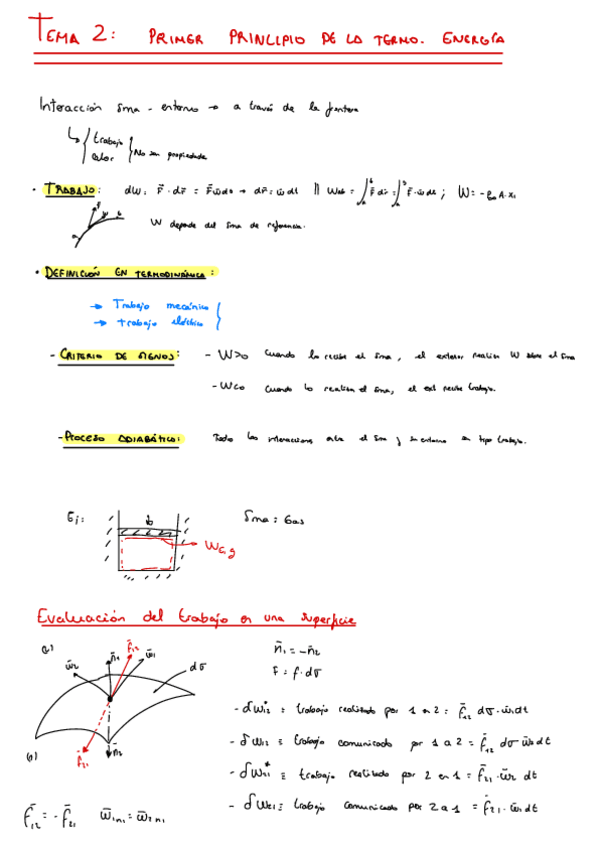 TEMA 2: PRIMER PRINCIPIO DE LA TERMO. ENERGÍA
Interacción sma - entorno → a través de la frontera
trabajo
calor
No son propiedades
· TRABAJO:
W depende del sma de referencia.
· DEFINICIÓN EN TERMODINÁMICA:
→ Trabajo mecánico
→ trabajo eléctrico
- CRITERIO DE SIGNOS: - W>0 cuando lo recibe el sma, el exterior realiza W sobre el sma
- W<0 cuando lo realiza el sma, el ext recibe trabajo.
- PROCESO ADIABÁTICO: Todas las interacciones entre el sma y su entorno son tipo trabajo.
Ej: Sma: Gas
Evaluación del trabajo en una superficie
n̄1 = -n̄2
F = f · dσ
dσ
- δW12* ≡ trabajo realizado por 1 a 2 = f̄12 dσ · w̄1 dt
- δW12 ≡ trabajo comunicado por 1 a 2 = f̄12 dσ w̄2 dt
- δW21* ≡ trabajo realizado por 2 en 1 = f̄21 · w̄2 dt
- δW21 ≡ trabajo comunicado por 2 a 1 = f̄21 · w̄1 dt
f̄12 = -f̄21 w̄1n1 = w̄2n1